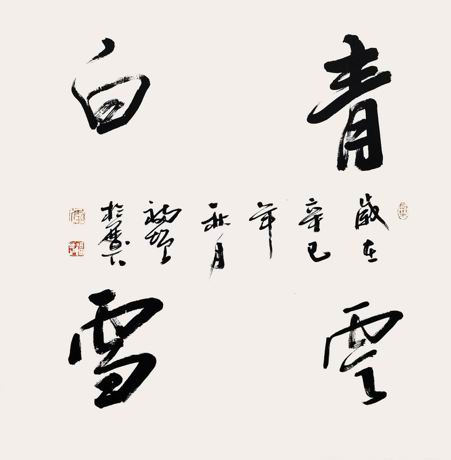 青雲
白雪
歲在
辛巳
年
秋月
於歷下